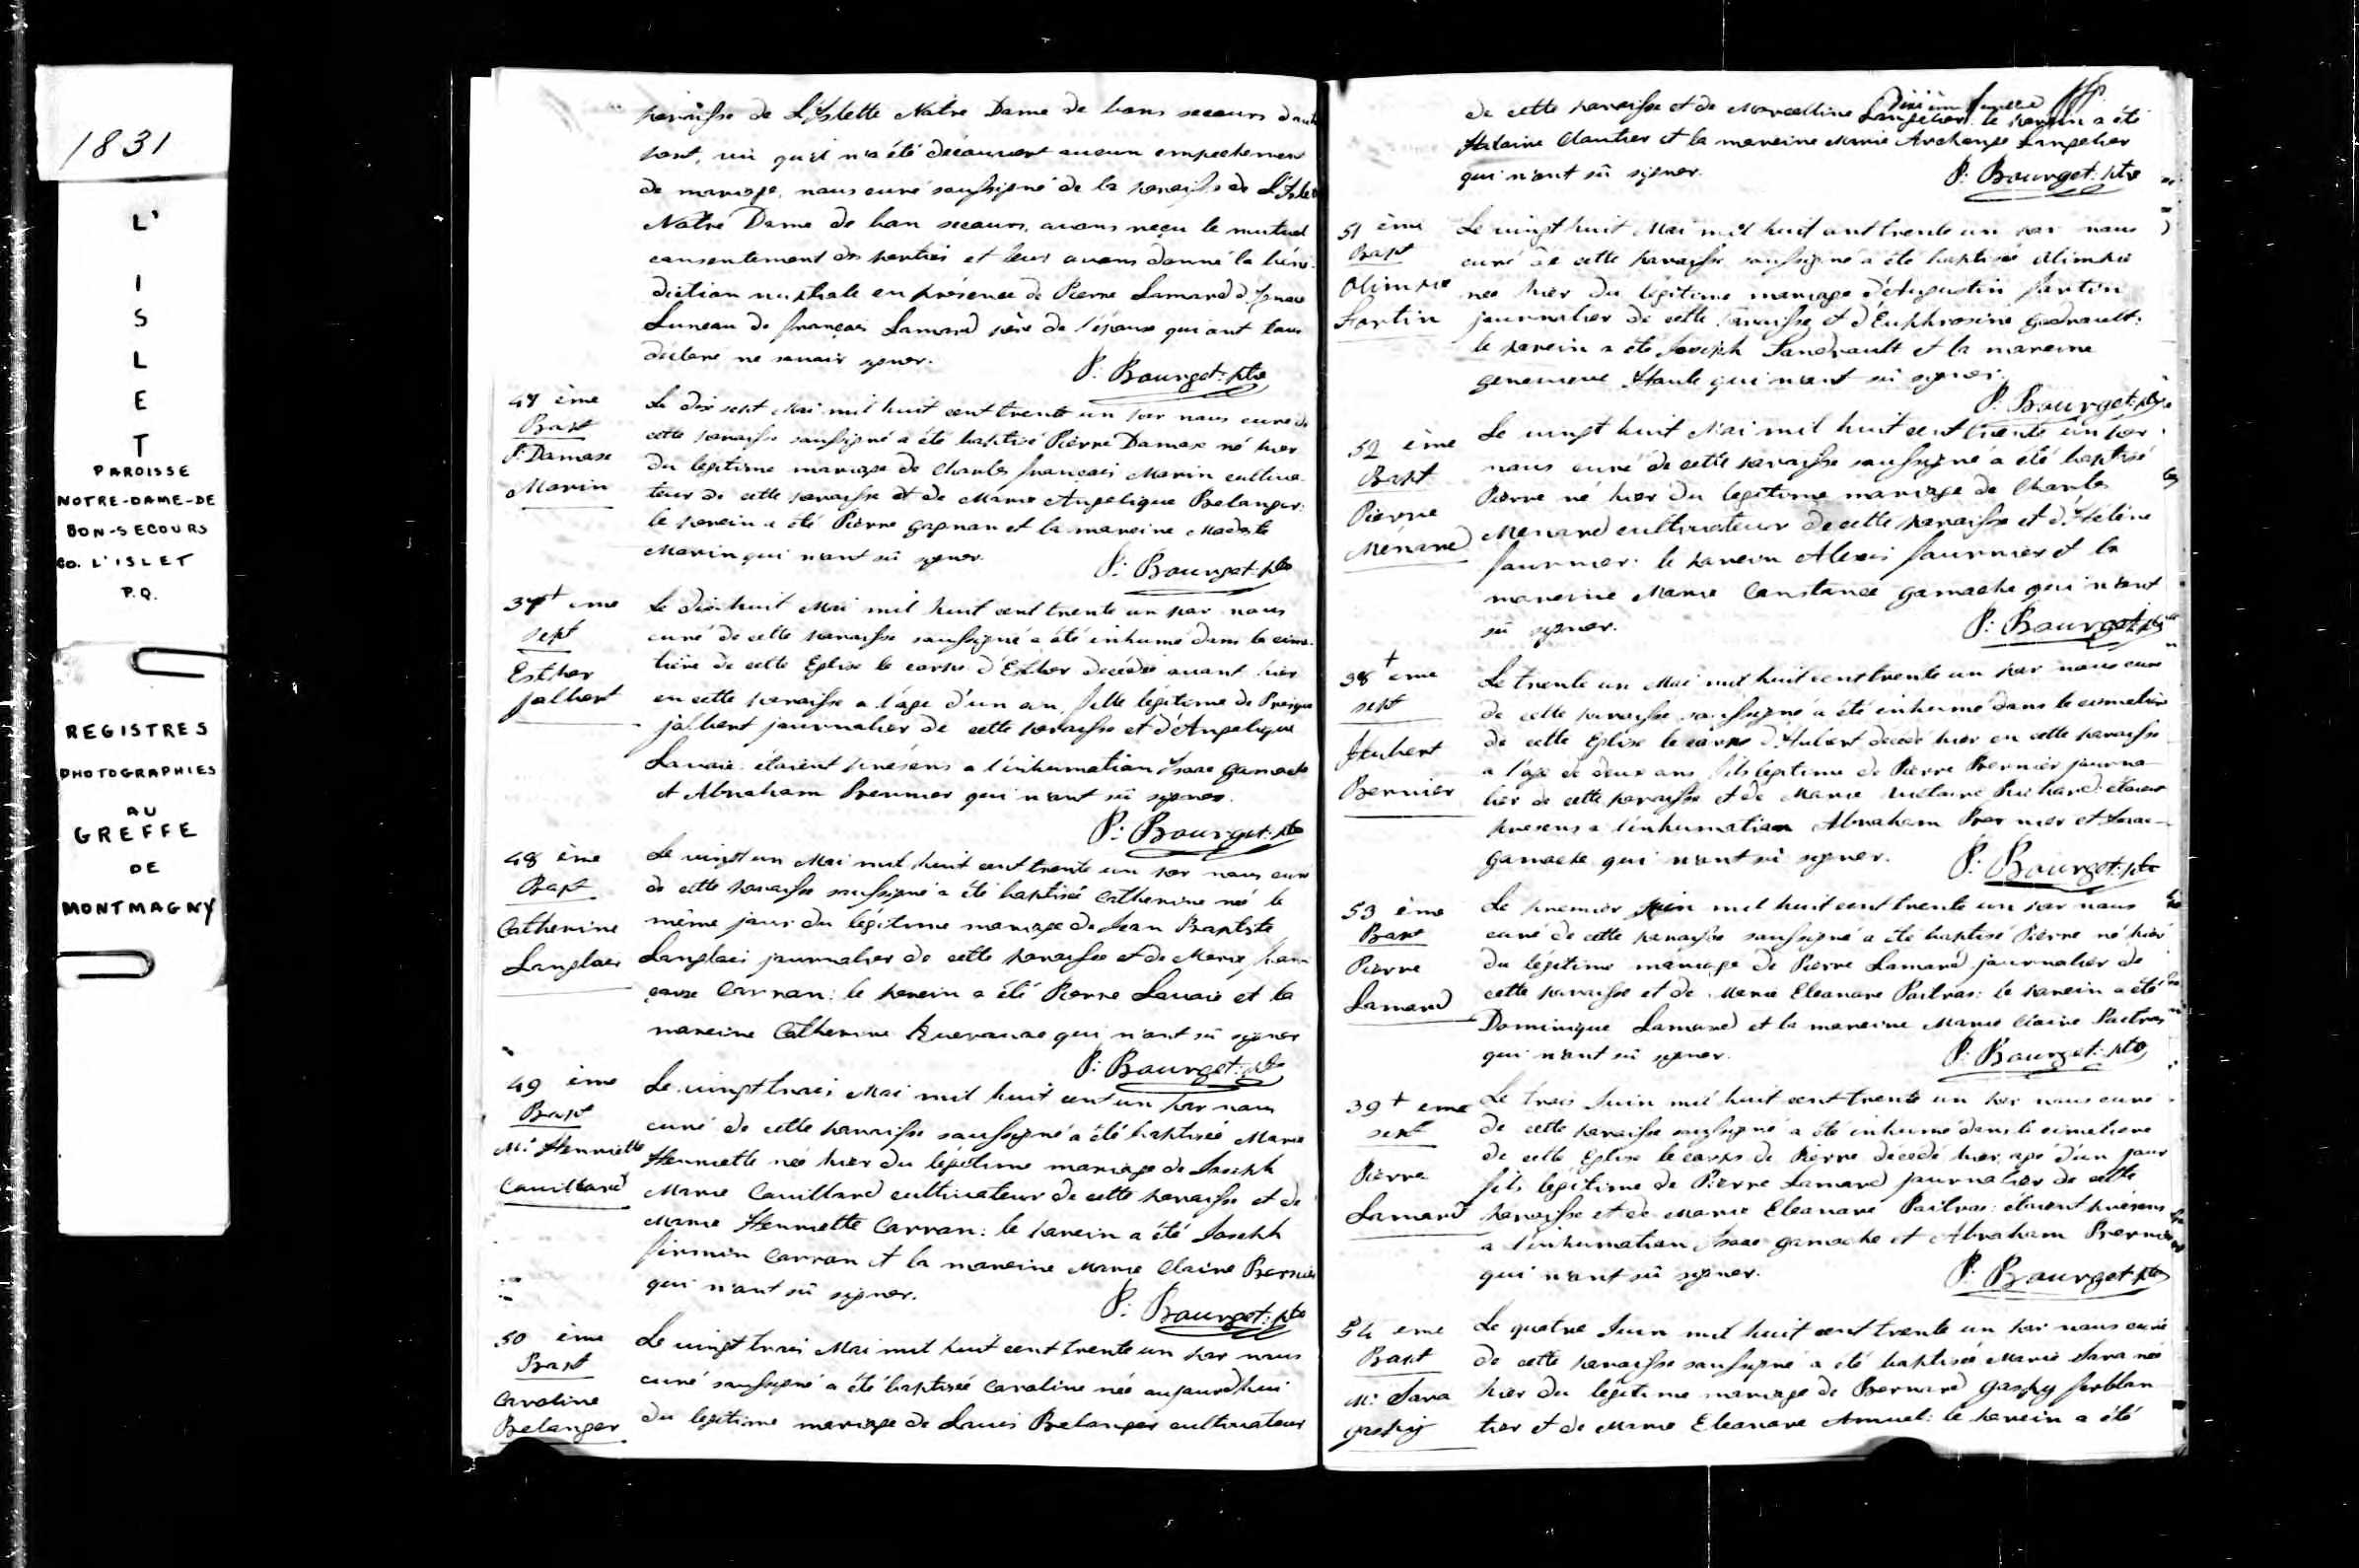 1831
L'
I
S
L
E
T
PAROISSE
NOTRE-DAME-DE
BON-SECOURS
CO. L'ISLET
P.Q.
REGISTRES
PHOTOGRAPHIES
AU
GREFFE
DE
MONTMAGNY
paroisse de L'Islette Notre Dame de bons secours d'autre
part, vû qu'il n'a été découvert aucun empechement
de mariage, nous curé soussigné de la paroisse de L'Islet
Notre Dame de bon secours, avons reçu le mutuel
consentement des parties et leur avons donné la béné-
diction nuptiale en présence de Pierre Lamard d'Ignace
Luneau de françois Lamard père de l'épouse qui ont tous
déclaré ne savoir signer.
P: Bourget: ptre
47 ème
Bapt
P: Damase
Morin
Le dix sept Mai mil huit cent trente un par nous curé de
cette paroisse soussigné a été baptisé Pierre Damase né hier
du legitime mariage de Charles françois Morin cultiva-
teur de cette paroisse et de Marie Angelique Belanger:
le parein a été Pierre gagnon et la mareine Modeste
Morin qui n'ont sû signer.
P: Bourget: ptre
37+ eme
sept
Esther
jalbert
Le dix huit Mai mil huit cent trente un par nous
curé de cette paroisse soussigné a été inhumé dans le cime-
tière de cette Eglise le corps d'Esther decédée avant hier
en cette paroisse a l'âge d'un an, fille légitime de Prisque
jalbert journalier de cette paroisse et d'Angelique
Lavoie: étaient présens a l'inhumation Isaac gamache
et Abraham Bernier qui n'ont sû signer.
P: Bourget: ptre
48 ème
Bapt
Catherine
Langlois
Le vingt un Mai mil huit cent trente un par nous curé
de cette paroisse soussigné a été baptisée Catherine né le
même jour du légitime mariage de Jean Baptiste
Langlois journalier de cette paroisse et de Marie fran-
çoise Carron: le parein a été Pierre Lavoie et la
mareine Catherine qui n'ont sû signer
P: Bourget: ptre
49 ème
Bapt
M: Henriette
Couillard
Le vingt trois Mai mil huit cent un par nous
curé de cette paroisse soussigné a été baptisée Marie
Henriette née hier du légitime mariage de Joseph
Marie Couillard cultivateur de cette paroisse et de
Marie Henriette Carron: le parein a été Joseph
firmin Carron et la mareine Marie Claire Bernier
qui n'ont sû signer.
P: Bourget: ptre
50 ème
Bapt
Caroline
Belanger
Le vingt trois Mai mil huit cent trente un par nous
curé soussigné a été baptisée Caroline née aujourd'hui
du legitime mariage de Louis Belanger cultivateur
de cette paroisse et de Marcelline Langelier: le parein a été
Hilaire Cloutier et la mareine Marie Archange Langelier
qui n'ont sû signer.
P: Bourget: ptre
51 ème
Bapt
Olimpie
fortin
Le vingt huit Mai mil huit cent trente un par nous
curé de cette paroisse soussigné a été baptisée Olimpie
née hier du légitime mariage d'Augustin fortin
journalier de cette paroisse et d'Euphrosine godrault:
le parein a été Joseph Landrault et la mareine
genevieve qui n'ont sû signer.
P: Bourget: ptre
52 ème
Bapt
Pierre
Menard
Le vingt huit Mai mil huit cent trente un par
nous curé de cette paroisse soussigné a été baptisé
Pierre né hier du legitime mariage de Charles
Menard cultivateur de cette paroisse et d'Hélène
fournier: le parein Alexis fournier et la
mareine Marie Constance gamache qui n'ont
sû signer.
P: Bourget: ptre
38+ eme
sept
Hubert
Bernier
Le trente un Mai mil huit cent trente un par nous curé
de cette paroisse soussigné a été inhumé dans le cimetière
de cette Eglise le corps d'Hubert decédé hier en cette paroisse
a l'age de deux ans fils legitime de Pierre Bernier journa-
lier de cette paroisse et de Marie étaient
présens a l'inhumation Abraham Bernier et Isaac
gamache qui n'ont sû signer.
P: Bourget: ptre
53 ème
Bapt
Pierre
Lamard
Le premier juin mil huit cent trente un par nous
curé de cette paroisse soussigné a été baptisé Pierre né hier
du légitime mariage de Pierre Lamard journalier de
cette paroisse et de Marie Eleonore Poitras: le parein a été
Dominique Lamard et la mareine Marie Claire Poitras
qui n'ont sû signer.
P: Bourget: ptre
39+ eme
sept
Pierre
Lamard
Le trois Juin mil huit cent trente un par nous curé
de cette paroisse soussigné a été inhumé dans le cimetiere
de cette Eglise le corps de Pierre decédé hier, agé d'un jour
fils legitime de Pierre Lamard journalier de cette
paroisse et de Marie Eleonore Poitras: étaient présens
a l'inhumation Isaac gamache et Abraham Bernier
qui n'ont sû signer.
P: Bourget: ptre
54 eme
Bapt
M: Sara
gaspy
Le quatre Juin mil huit cent trente un par nous curé
de cette paroisse soussigné a été baptisée Marie Sara née
hier du légitime mariage de Bernard gaspy ferblan-
tier et de Marie Eleonore Amuel: le parein a été